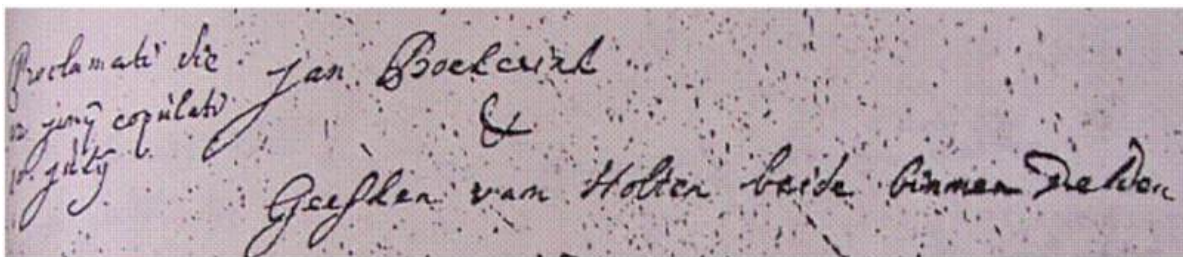 Proclamati die
12 junÿ copulati
10 julÿ
Jan Boekerink
&
Geesken van Holten beide binnen Delden